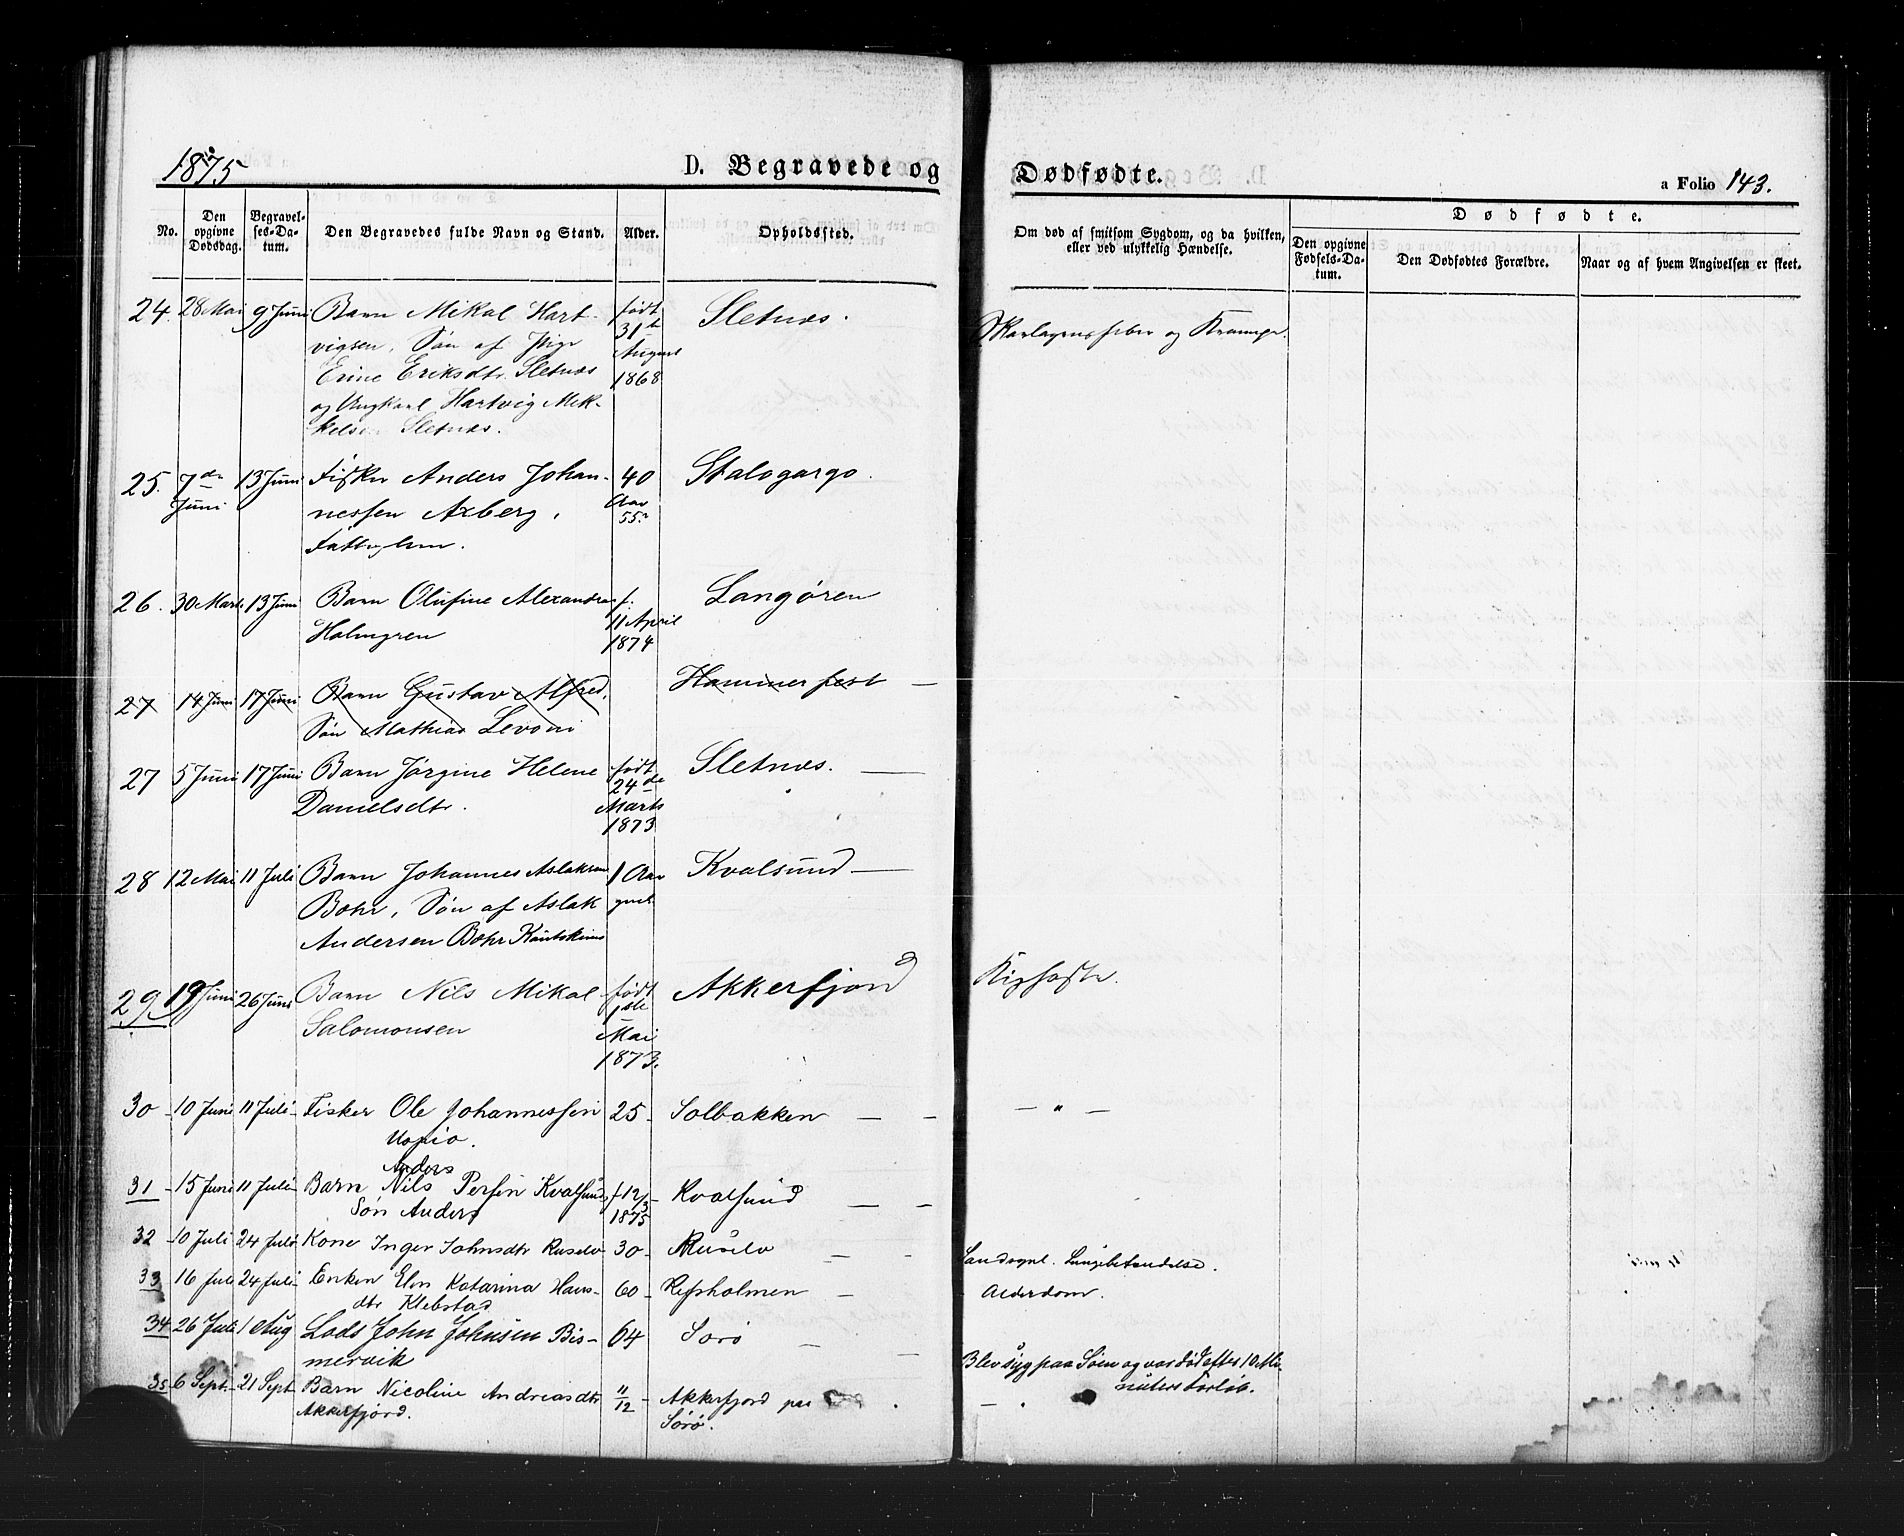 1875
D. Begravede og Dødfødte.
a Folio 143.
No.
Den opgivne Dødsdag.
Begravel-
ses-Da-
tum.
Den Begravedes fulde Navn og Stand.
Alder.
Opholdssted.
Om død af smitsom Sygdom, og da hvilken,
eller ved ulykkelig Hændelse.
Dødfødte.
Den opgivne
Fødsels-Da-
tum.
Den Dødfødtes Forældre.
Naar og af hvem Angivelsen er skeet.
24. 28 Mai 9 Juni Barn Mikal Hart- født Sletnæs. Skarlagensfeber og Krampe.
vigsen, Søn af Pige 31te
Erine Eriksdtr. Sletnæs August
og Ungkarl Hartvig Mik- 1868
kelsen Sletnæs.
25. 7de 13 Juni Fisker Anders Johan- 40 Stalogargo.
Juni nessen Axberg, Aar
Fattiglem. 55
26. 30 Marts 13 Juni Barn Olufine Alexandra f. Langøren
Holmgren 11 April
1874
27 14 Juni 17 Juni Barn Gustav Alfred, Hammerfest —
Søn Mathias Levoni
27 5 Juni 17 Juni Barn Jørgine Helene født Sletnæs. —
Danielsdtr. 24de
Marts
1873
28 12 Mai 11 Juli Barn Johannes Aslaksen 1 Aar Kvalsund —
Bohr, Søn af Aslak gml.
Andersen Bohr Kautokeino
29 19 Juni 26 Juni Barn Nils Mikal født Akkerfjord Kighoste.
Salomonsen 1ste
Mai
1873.
30 – 10 Juni 11 Juli – Fisker Ole Johannessen 25 – Solbakken — — — " —
Anders
31 – 15 Juni 11 Juli – Barn Nils Persen Kvalsund, f 12/3 – Kvalsund — —
Søn Anders 1875
32 – 10 Juli 24 Juli Kone Inger Johnsdtr Ruselv 30 – Ruselv — — Landsgnl. Lungebetændelse.
33 16 Juli 24 Juli – Enken Elen Katarina Hans- 60 – Refsholmen — Alderdom.
dtr Klebstad
34 26 Juli 1 Aug Lods John Johnsen Bis- 64 Sørø — —
mervik
Blev syg paa Søen og var død efter 10 Mi-
nuters Forløb.
35 6 Sept. – 21 Sept Barn Nicoline Andreasdtr 11/12 – Akkerfjord paa
Akkerfjord. Sørø.